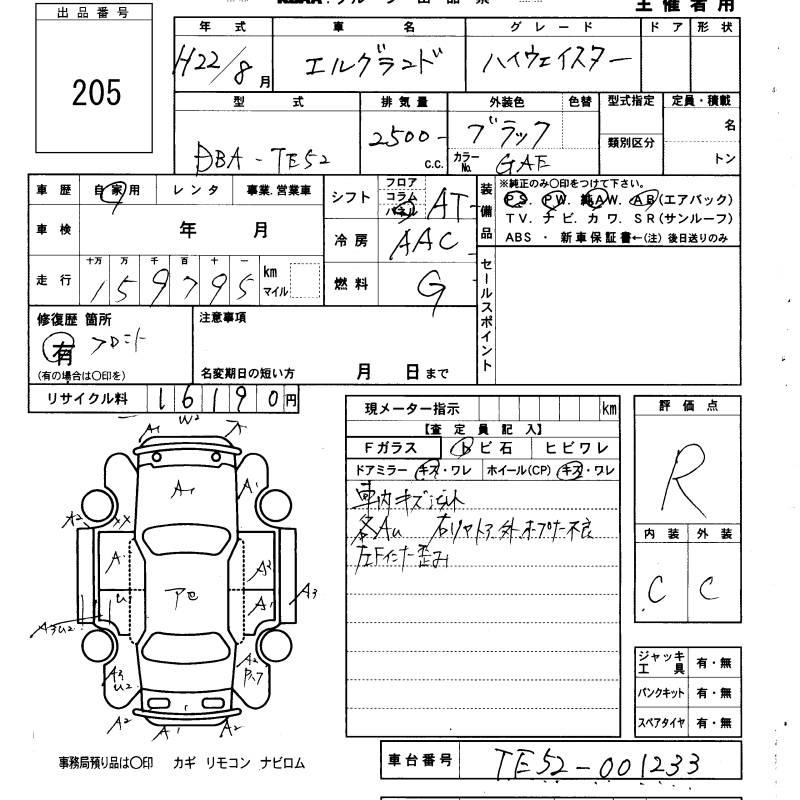 出品番号
205
主催者用
年式 車名 グレード ドア 形状
H22/8月 エルグランド ハイウェイスター
型式 排気量 外装色 色替 型式指定 定員・積載
類別区分
DBA-TE52 2500 c.c. ブラック 名
カラーNo. GAE トン
車歴 自家用 レンタ 事業.営業車
シフト フロア コラム パネル AT
装備品 ※純正のみ〇印をつけて下さい。
PS. PW. 純AW. AB(エアバック)
TV. ナビ. カワ. SR(サンルーフ)
ABS ・ 新車保証書←(注) 後日送りのみ
車検 年 月
冷房 AAC
走行 十万 万 千 百 十 一
159795 km マイル
燃料 G
セールスポイント
修復歴 箇所
有 フロント
(有の場合は〇印を)
注意事項
名変期日の短い方 月 日まで
リサイクル料 16190円
現メーター指示 km
【査定員記入】
Fガラス トビ石 ヒビワレ
ドアミラー キズ・ワレ ホイール(CP) キズ・ワレ
車内キズ
各AU 右リヤドア外 不良
左Fインナー歪み
評価点
R
内装 外装
C C
W2
A1
A1 A1
X2 XX
A1 A2
U1 A1 A3
A3U2
アセ
A3 U2
A2
A2 A1 A2
ジャッキ工具 有・無
パンクキット 有・無
スペアタイヤ 有・無
事務局預り品は〇印 カギ リモコン ナビロム
車台番号 TE52-001233